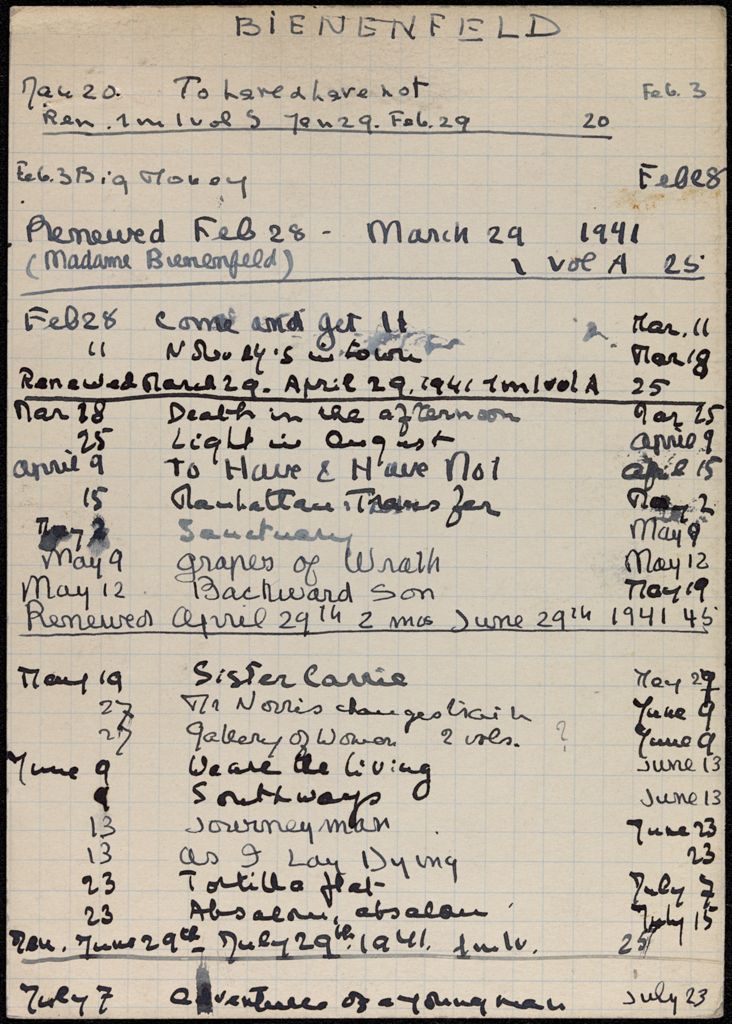 BIENENFELD
Jan 20. To have & have not Feb. 3
Ren. 1m 1 vol S Jan 29. Feb. 29 20
Feb. 3 Big Money Feb 28
Renewed Feb 28 - March 29 1941
(Madame Bienenfeld) 1 vol A 25
Feb 28 Come and get It Mar. 11
11 Nobody's in town Mar 18
Renewed March 29. April 29. 1941 1m 1 vol A 25
Mar 18 Death in the afternoon Mar 25
25 Light in August April 9
April 9 To Have & Have Not April 15
15 Manhattan Transfer May 2
May 2 Sanctuary May 9
May 9 grapes of Wrath May 12
May 12 Backward Son May 19
Renewed April 29th 2 mos June 29th 1941 45
May 19 Sister Carrie May 27
27 Mr Norris changes train June 9
27 Gallery of Women 2 vols. ? June 9
June 9 We are the living June 13
9 Southways June 13
13 Journeyman June 23
13 As I Lay Dying 23
23 Tortilla flat July 7
23 Absalom, absalom July 15
Ren. June 29th - July 29th. 1941. 1m1v. 25
July 7 adventures of a young man July 23